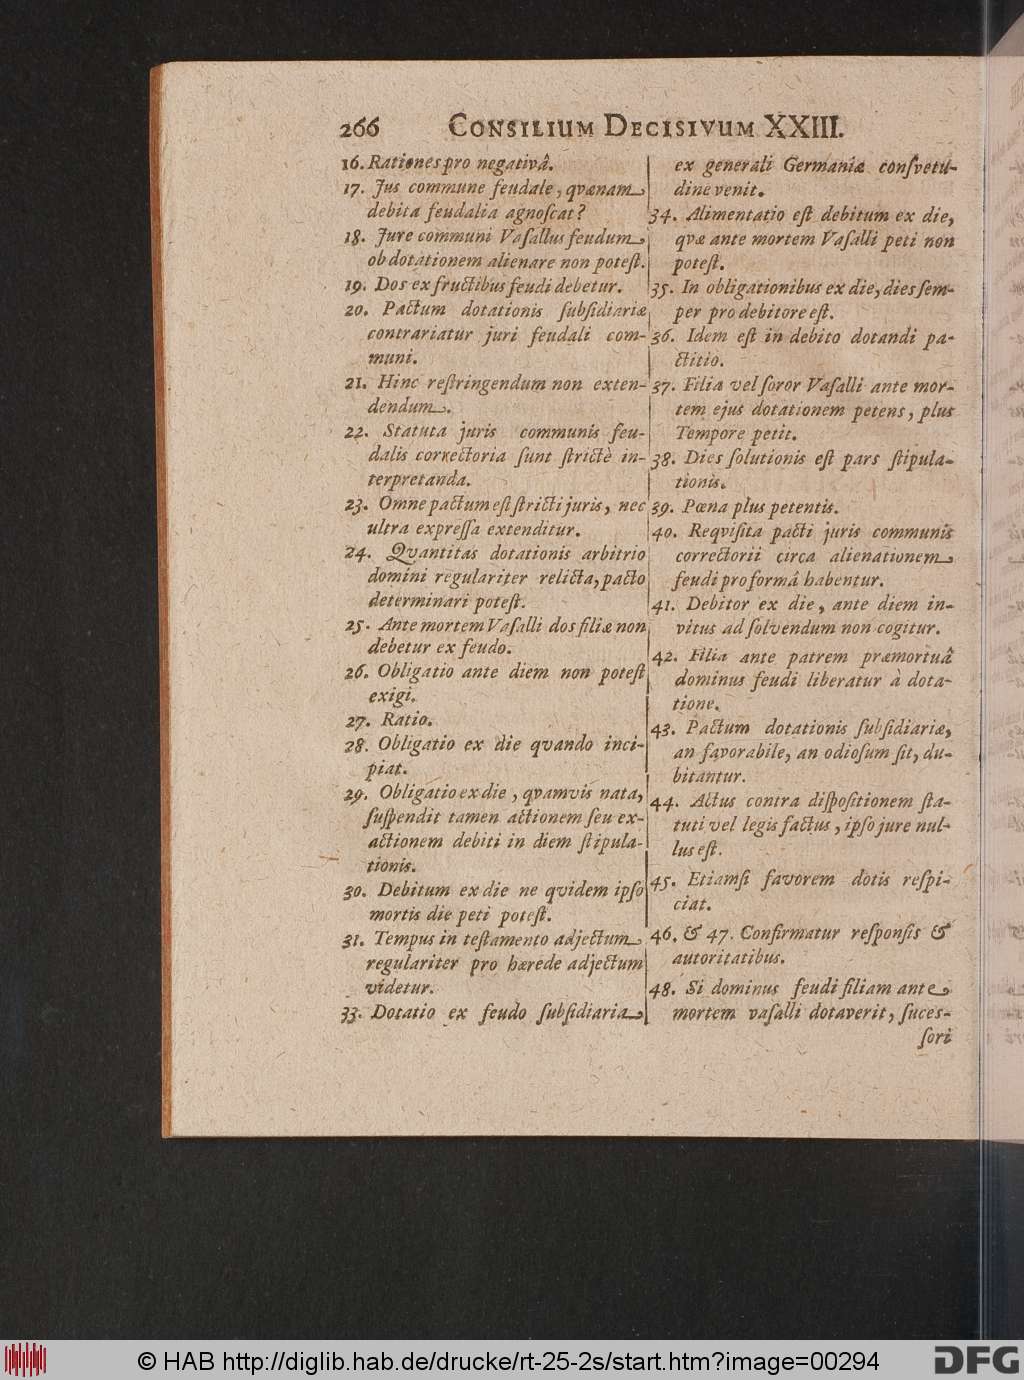 266 CONSILIUM DECISIVUM XXIII.
16. Rationes pro negativâ.
17. Jus commune feudale, qvænam
debita feudalia agnoſcat?
18. Jure communi Vaſallus feudum
ob dotationem alienare non poteſt.
19. Dos ex fructibus feudi debetur.
20. Pactum dotationis ſubſidiariæ
contrariatur juri feudali com-
muni.
21. Hinc reſtringendum non exten-
dendum.
22. Statuta juris communis feu-
dalis correctoria ſunt ſtrictè in-
terpretanda.
23. Omne pactum eſt ſtricti juris, nec
ultra expreſſa extenditur.
24. Qvantitas dotationis arbitrio
domini regulariter relicta, pacto
determinari poteſt.
25. Ante mortem Vaſalli dos filiæ non
debetur ex feudo.
26. Obligatio ante diem non poteſt
exigi.
27. Ratio.
28. Obligatio ex die qvando inci-
piat.
29. Obligatio ex die, qvamvis nata,
ſuſpendit tamen actionem ſeu ex-
actionem debiti in diem ſtipula-
tionis.
30. Debitum ex die ne qvidem ipſo
mortis die peti poteſt.
31. Tempus in teſtamento adjectum
regulariter pro hærede adjectum
videtur.
33. Dotatio ex feudo ſubſidiaria
ex generali Germaniæ conſvetu-
dine venit.
34. Alimentatio eſt debitum ex die,
qvæ ante mortem Vaſalli peti non
poteſt.
35. In obligationibus ex die, dies ſem-
per pro debitore eſt.
36. Idem eſt in debito dotandi pa-
ctitio.
37. Filia vel ſoror Vaſalli ante mor-
tem ejus dotationem petens, plus
Tempore petit.
38. Dies ſolutionis eſt pars ſtipula-
tionis.
39. Pœna plus petentis.
40. Reqviſita pacti juris communis
correctorii circa alienationem
feudi pro formâ habentur.
41. Debitor ex die, ante diem in-
vitus ad ſolvendum non cogitur.
42. Filia ante patrem præmortuâ
dominus feudi liberatur à dota-
tione.
43. Pactum dotationis ſubſidiariæ,
an favorabile, an odioſum ſit, du-
bitantur.
44. Actus contra diſpoſitionem ſta-
tuti vel legis factus, ipſo jure nul-
lus eſt.
45. Etiamſi favorem dotis reſpi-
ciat.
46. & 47. Confirmatur reſponſis &
autoritatibus.
48. Si dominus feudi filiam ante
mortem vaſalli dotaverit, ſuceſ-
ſori
© HAB http://diglib.hab.de/drucke/rt-25-2s/start.htm?image=00294
DFG